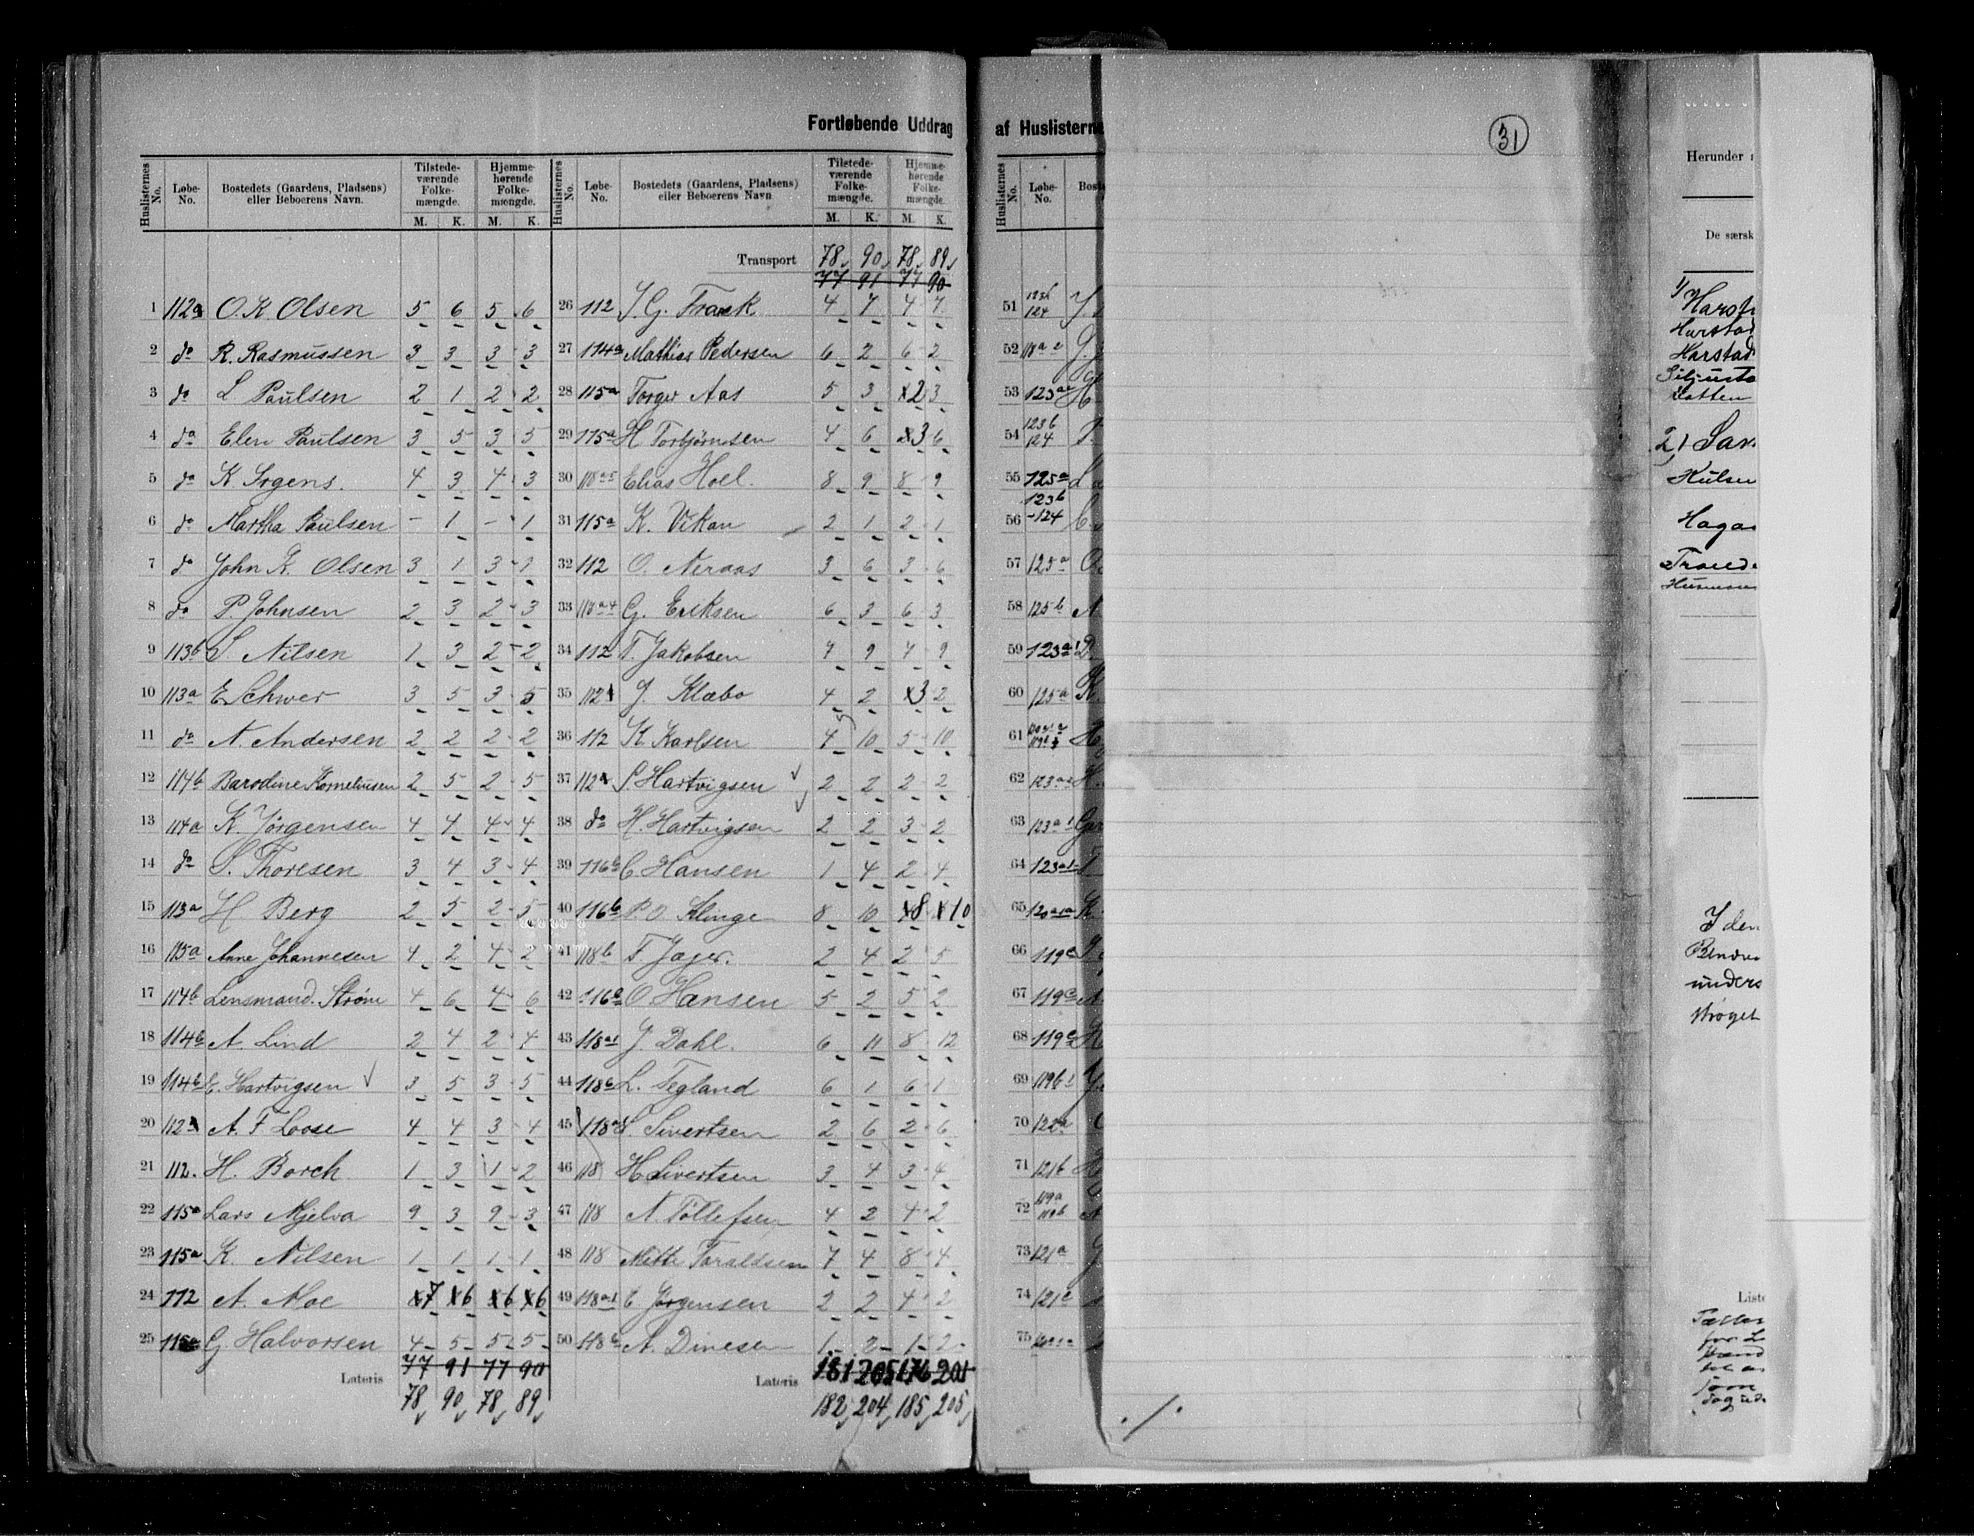 Fortløbende Uddrag
Huslisternes No. Løbe-No. Bostedets (Gaardens, Pladsens) eller Beboerens Navn. Tilstedeværende Folkemængde. M. K. Hjemmehørende Folkemængde. M. K.
1 112a O. K. Olsen 5 6 5 6
2 do R. Rasmussen 3 3 3 3
3 do L Paulsen 2 1 2 2
4 do Elen Paulsen 3 5 3 5
5 do K Irgens 4 3 4 3
6 do Martha Paulsen - 1 - 1
7 do John K. Olsen 3 1 3 1
8 do P. Johnsen 2 3 2 3
9 113b S. Nilsen 1 3 2 2
10 113a E Schwer 3 5 3 5
11 do N. Andersen 2 2 2 2
12 114b Barodine Korneliusen 2 5 2 5
13 114a K. Jørgensen 4 4 4 4
14 do S. Thoresen 3 4 3 4
15 113a H Berg 2 5 2 5
16 115a Anne Johannesen 4 2 4 2
17 114b Lensmand. Strøm 4 6 4 6
18 114b A. Lind 2 4 2 4
19 114b E. Hartvigsen 3 5 3 5
20 112 A. F Loose 4 4 3 4
21 112. H. Borch 1 3 1 2
22 115a Lars Mjelva 9 3 9 3
23 115a K. Nilsen 1 1 1 1
24 112 A. Moe 7 6 6 6
25 G Halvorsen 4 5 5 5
77 91 77 90
Lateris
78 90 78 89
Huslisternes No. Løbe-No. Bostedets (Gaardens, Pladsens) eller Beboerens Navn Tilstedeværende Folkemængde. M. K. Hjemmehørende Folkemængde. M. K.
Transport 78 90 78 89
77 91 77 90
26 112 J. G. Frank 4 7 4 7
27 114a Mathias Pedersen 6 2 6 2
28 115a Torger Aas 5 3 2 3
29 115a H Torbjørnsen 4 6 3 6
30 118a5 Elias Hoel. 8 9 8 9
31 115a K. Vikan 2 1 2 1
32 112 O. Neraas 3 6 3 6
33 118a4 G. Eriksen 6 3 6 3
34 112 T. Jakobsen 7 9 7 9
35 112 J. Klæbo 4 2 3 2
36 112 K Karlsen 4 10 5 10
37 112 S Hartvigsen 2 2 2 2
38 do H. Hartvigsen 2 2 3 2
39 116b C Hansen 1 4 2 4
40 116b P. O. Klinge 8 10 8 10
41 118b F. Jæger. 2 4 2 5
42 116b O Hansen 5 2 5 2
43 118a1 J. Dahl. 6 11 8 12
44 118b L. Tegland 6 1 6 1
45 118a S. Sivertsen 2 6 2 6
46 118 H Sivertsen 3 4 3 4
47 118 N. Tollefsen 4 2 4 2
48 118 Mette Taraldsen 7 4 8 4
49 118a1 E Jørgensen 2 2 4 2
50 118b A. Dinesen 1 2 1 2
181 205 176 201
Lateris
182 204 185 205
af Huslisterne
Huslisternes No. Løbe-No.
51 123b 124
52 118a2
53 123a
54 123b 124
55 125a
56 123b -124
57 125a
58 125b
59 123a1
60 125a
61
62 123a
63 123a1
64 123a1
65 120a
66 119c
67 119c
68 119c
69 119b1
70
71 121b
72 119a 119b
73 121a
74 121c
75
31
./.
Herunder
De særsk
1)
Harstad
Harstad
2) San
Haga
I den
unders
strøget
Liste